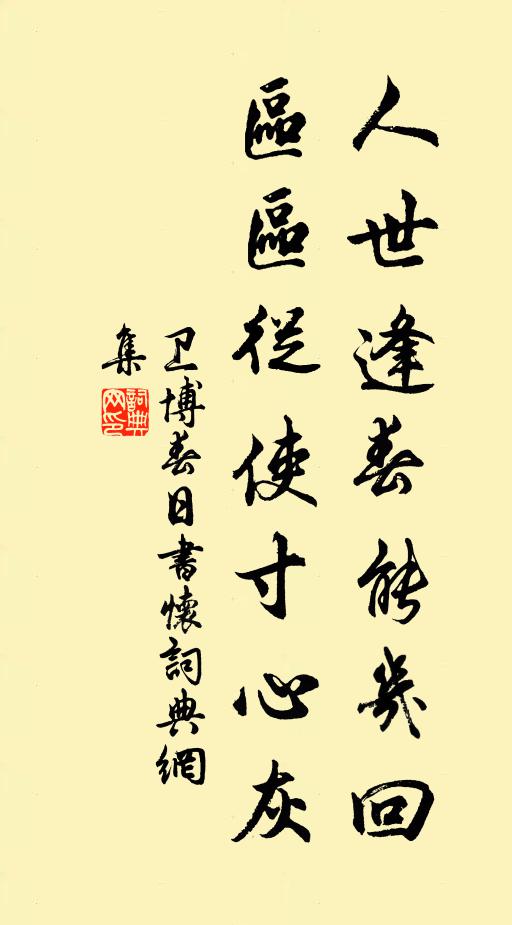 人世逢春能幾回
區區從使寸心灰
卫博春日書懷詞典網
集
詞典
网印